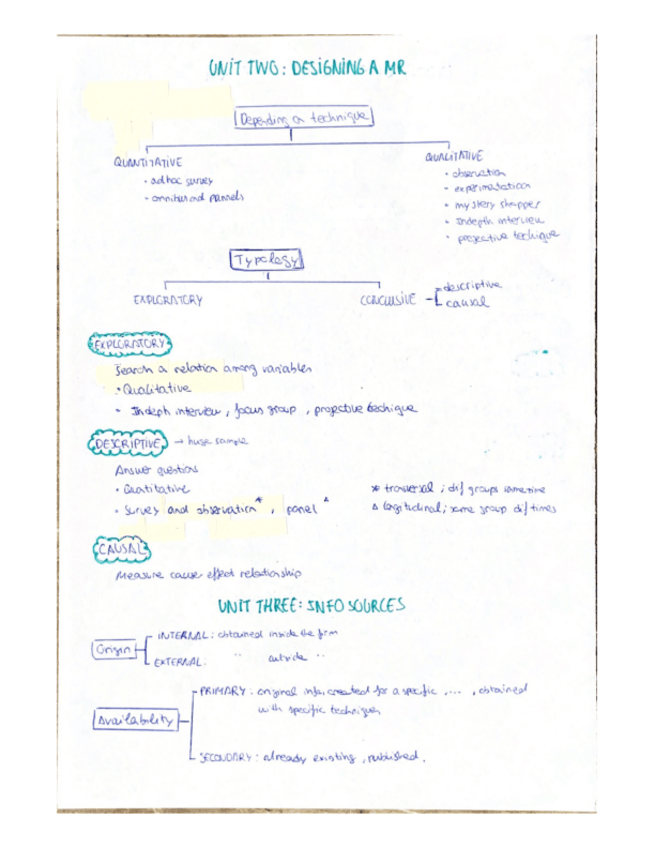 UNIT TWO: DESIGNING A MR
Depending on technique
QUANTITATIVE
• adhoc survey
• omnibus and pannels
QUALITATIVE
• observation
• experimetation
• mystery shopper
• Indepth interview
• projective techique
Typology
EXPLORATORY
CONCLUSIVE
descriptive
causal
EXPLORATORY
Search a relation among variables
• Qualitative
• Indeph interview, focus group, projective techique
DESCRIPTIVE → huge sample
Answer questions
• Quatitative
• Survey and observation *, panel △
* trasversal; dif groups same time
△ longitudinal; same group dif times
CAUSAL
Measure cause effect relationship
UNIT THREE: INFO SOURCES
Origin
INTERNAL: obtained inside the firm
EXTERNAL: " outside "
Availability
PRIMARY: original info, created for a specific ...., obtained
with specific technique,
SECONDARY: already existing, published.